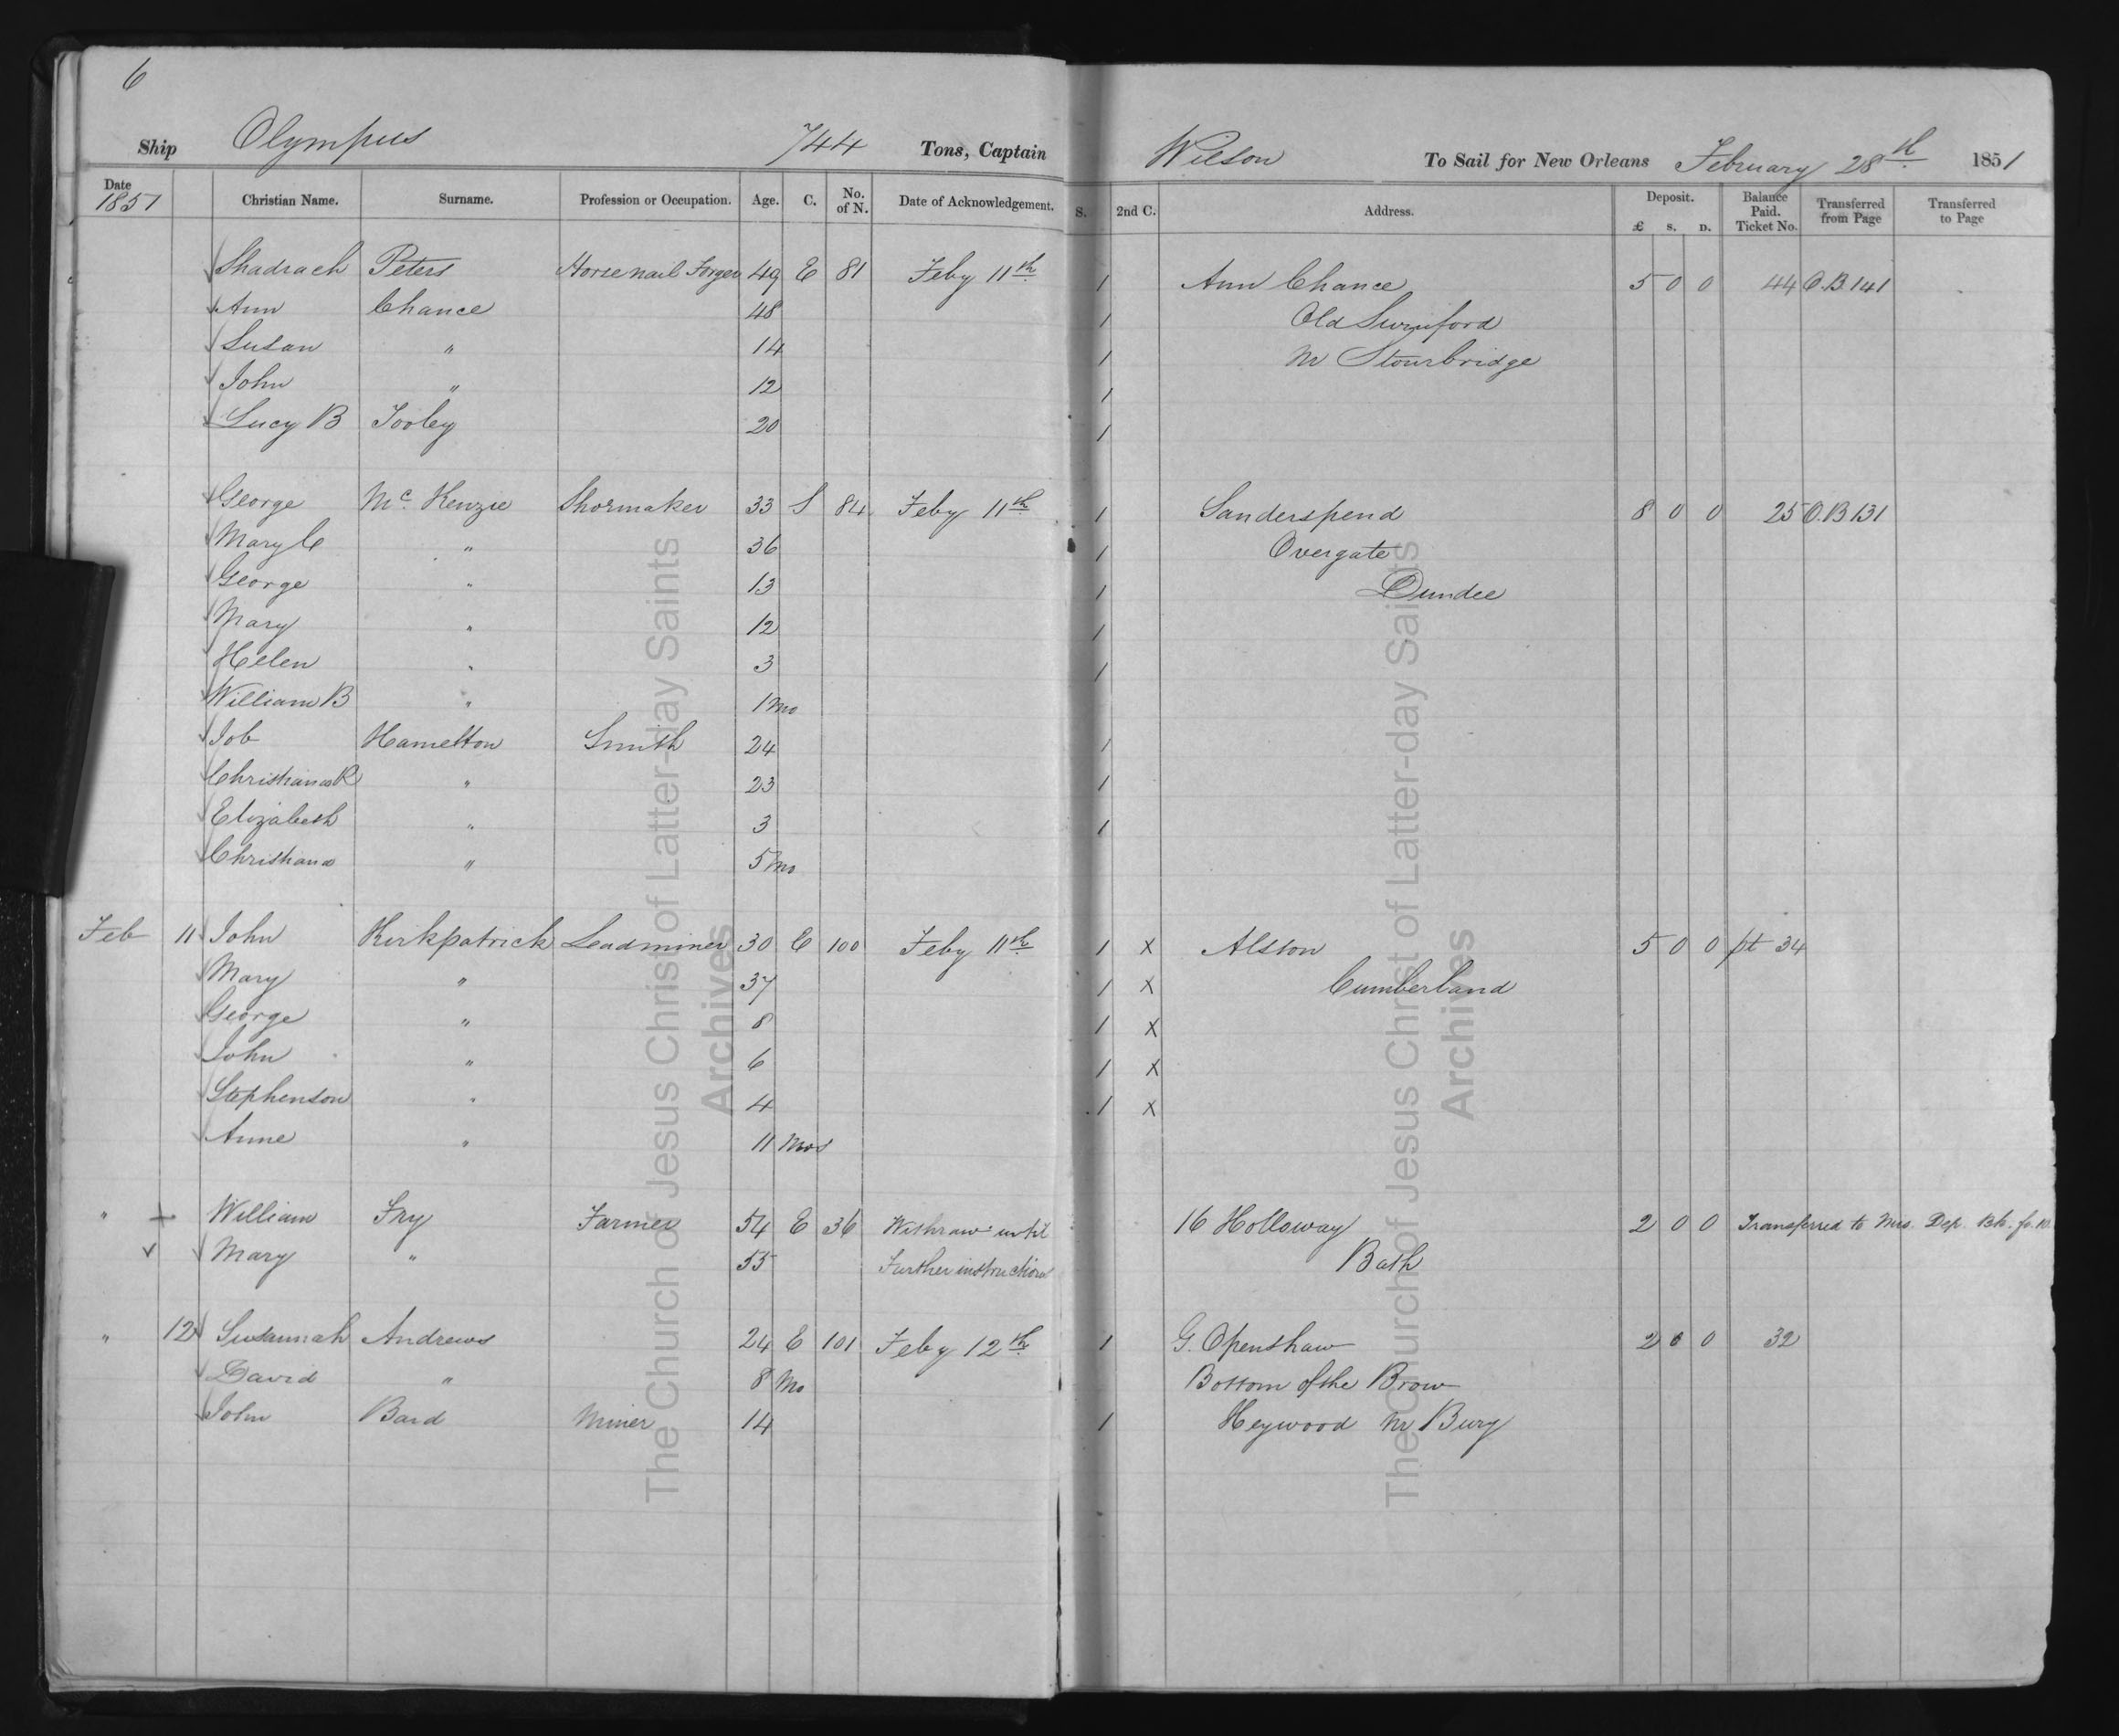 6
Ship Olympus 744 Tons, Captain Wilson To Sail for New Orleans February 28th 1851
Date 1851 Christian Name. Surname. Profession or Occupation. Age. C. No. of N. Date of Acknowledgement. S. 2nd C. Address. Deposit. £ s. D. Balance Paid. Ticket No. Transferred from Page Transferred to Page
Shadrach Peters Horsenail Forger 49 E 81 Feby 11th 1 Ann Chance 5 0 0 44 O.B. 141
Ann Chance 48 1 Old Swinford
Susan " 14 1 Nr Stourbridge
John " 12 1
Lucy B Tooley 20 1
George Mc Kenzie Shormaker 33 S 84 Feby 11th 1 Sanderspend 8 0 0 25 O.B 131
Mary C " 36 1 Overgate
George " 13 1 Dundee
Mary " 12 1
Helen " 3 1
William B " 1 Mo
Job Hamelton Smith 24 1
Christiana R " 23 1
Elizabeth " 3 1
Christiana " 5 Mo
Feb 11 John Kirkpatrick Leadminer 30 E 100 Feby 11th 1 X Alston 5 0 0 pt 34
Mary " 37 1 X Cumberland
George " 8 1 X
John " 6 1 X
Stephenson " 4 1 X
Anne " 11 Mos
" William Fry Farmer 54 E 36 Withraw until 16 Holloway 2 0 0 Transferred to Mis. Dep. Bk. fo. 10
Mary " 55 Further instruction Bath
" 12 Susannah Andrews 24 E 101 Feby 12th 1 G. Openshaw 2 0 0 32
David " 8 Mo Bottom of the Brow
John Bard Miner 14 1 Heywood Nr Bury
The Church of Jesus Christ of Latter-day Saints
Archives
The Church of Jesus Christ of Latter-day Saints
Archives